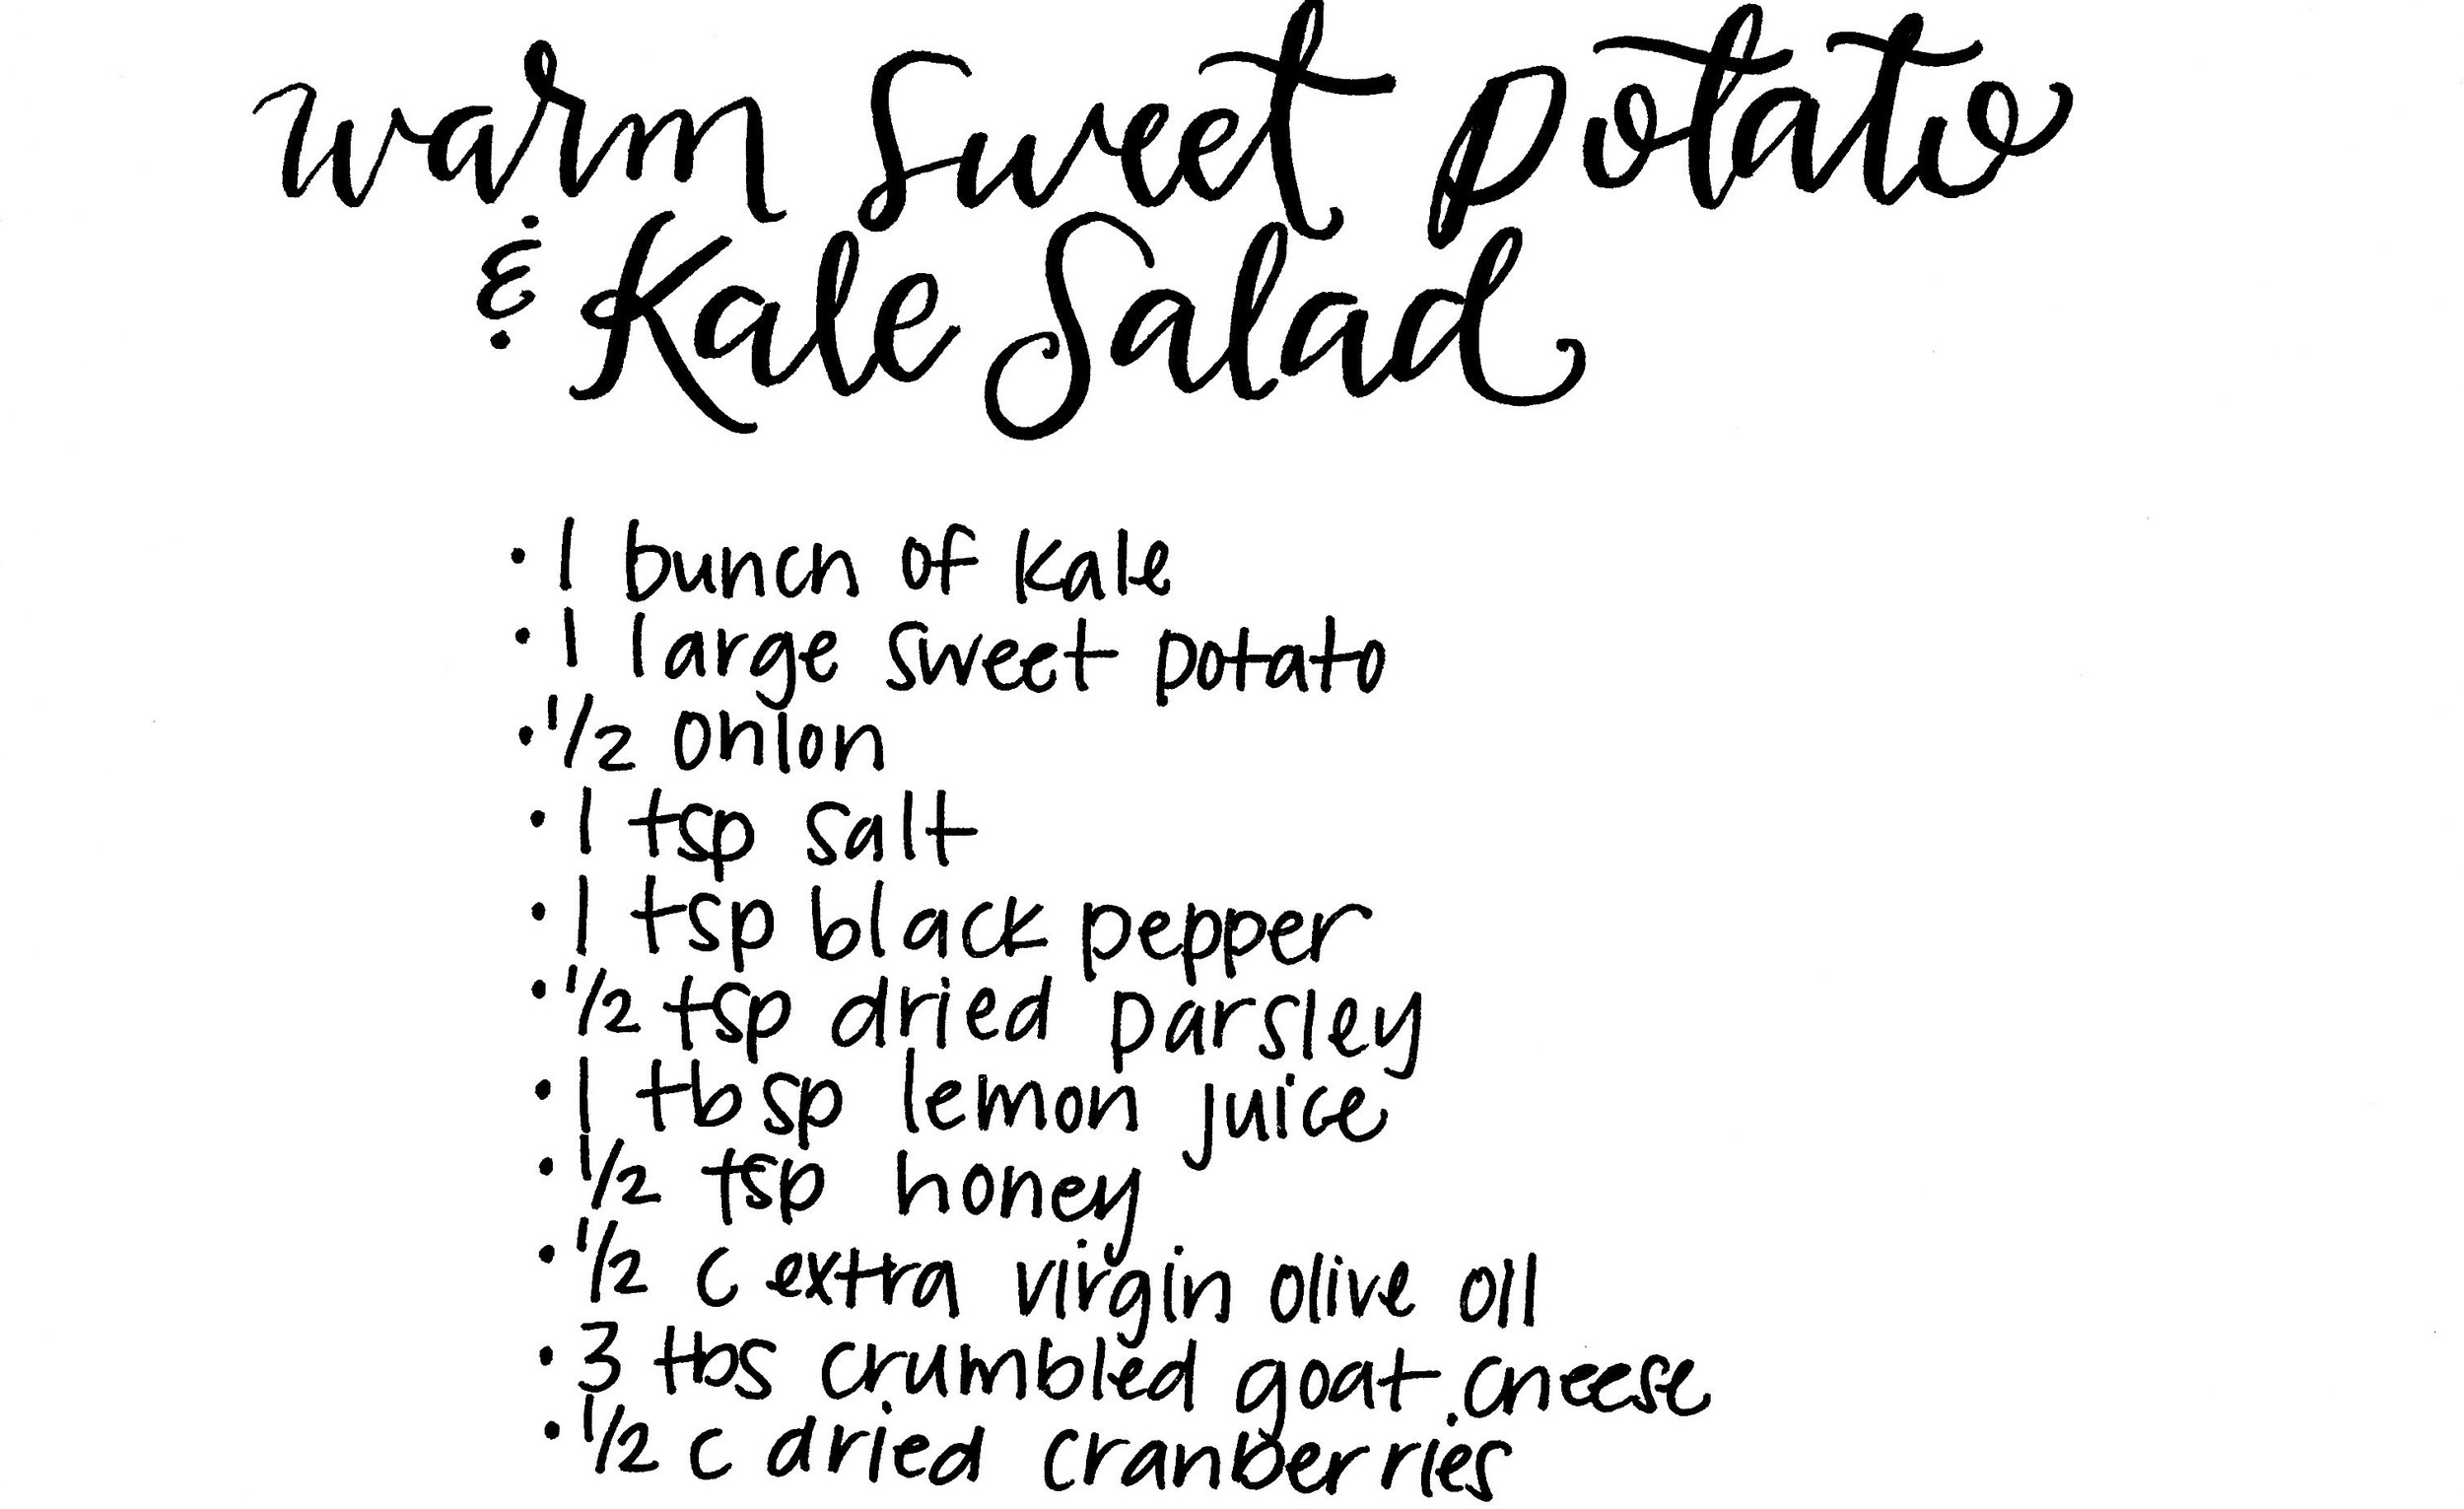 warm Sweet Potato
& Kale Salad
· 1 bunch of kale
· 1 large sweet potato
· 1/2 onion
· 1 tsp salt
· 1 tsp black pepper
· 1/2 tsp dried parsley
· 1 tbsp lemon juice
· 1/2 tsp honey
· 1/2 c extra virgin olive oil
· 3 tbs crumbled goat cheese
· 1/2 c dried cranberries